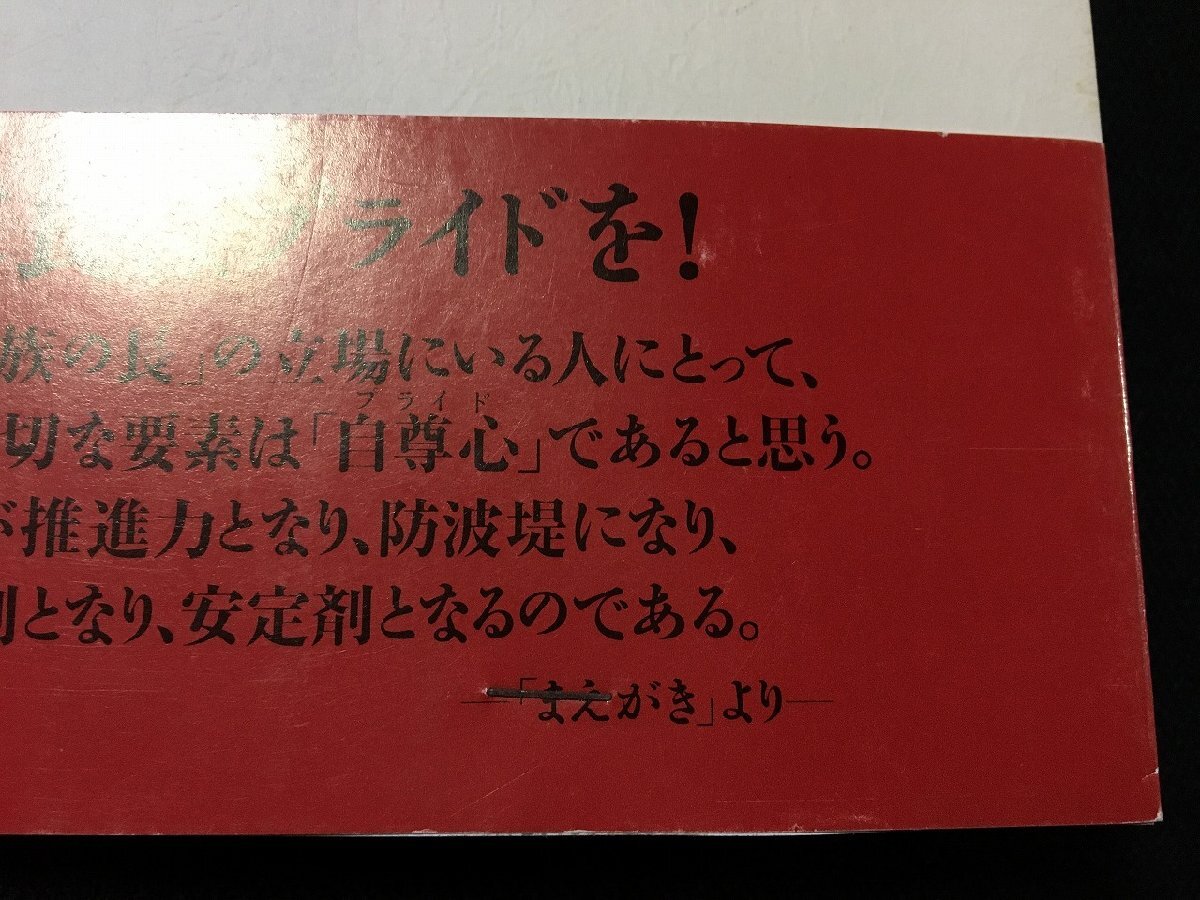 プライドを!
族の長」の立場にいる人にとって、
切な要素は「自尊心」であると思う。
プライド
が推進力となり、防波堤になり、
剤となり、安定剤となるのである。
―「まえがき」より―